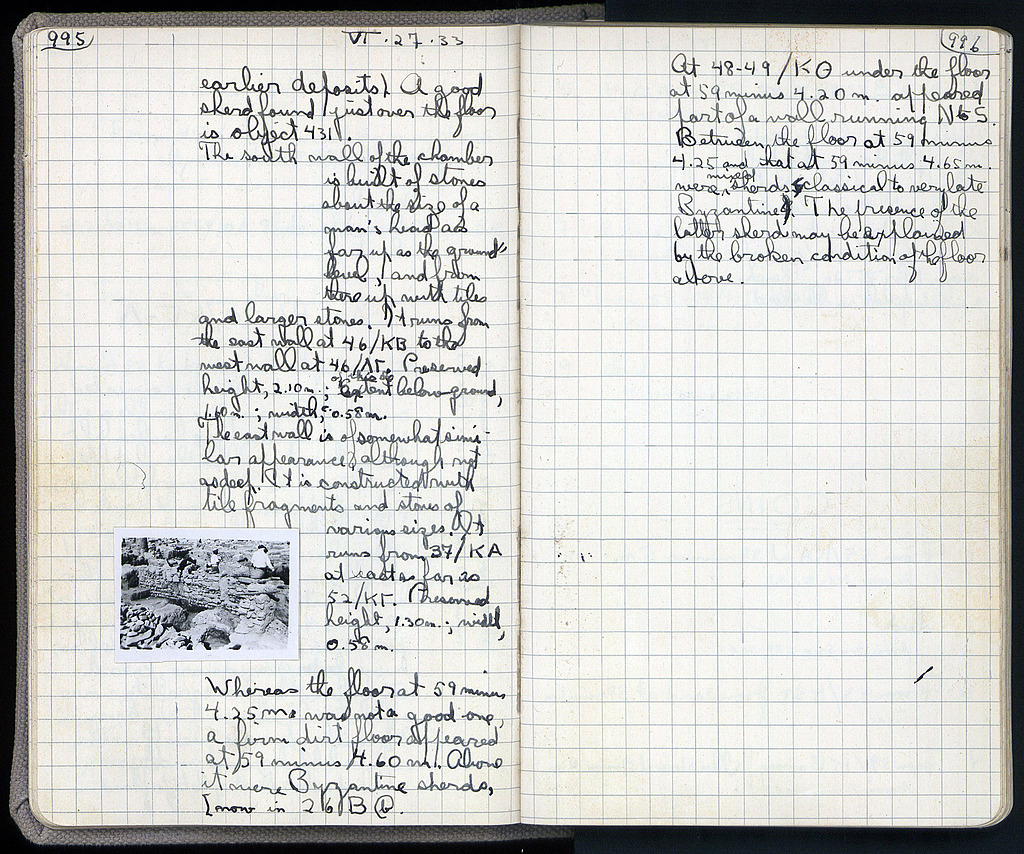 995
VI·27·33
earlier deposits). A good
sherd found just over the floor
is object 431.
The south wall of the chamber
is built of stones
about the size of a
man's head as
far up as the ground
level, and from
there up with tiles
and larger stones. It runs from
the east wall at 46/KB to the
west wall at 46/ΛΓ. Preserved
height, 2.10 m.; extent below ground,
1.60 m.; width, 0.58 m.
The east wall is of somewhat simi-
lar appearance, although not
as deep. It is constructed with
tile fragments and stones of
various sizes. It
runs from 37/KA
at least as far as
52/KΓ. Preserved
height, 1.30 m.; width,
0.58 m.
Whereas the floor at 59 minus
4.25 m. was not a good one,
a firm dirt floor appeared
at 59 minus 4.60 m. Above
it were Byzantine sherds,
[now in 26 B
996
At 48-49/KO under the floor
at 59 minus 4.20 m. appeared
part of a wall running N to S.
Between the floor at 59 minus
4.25 and that at 59 minus 4.65 m.
were mixed sherds, classical to very late
Byzantine. The presence of the
latter sherd may be explained
by the broken condition of the floor
above.